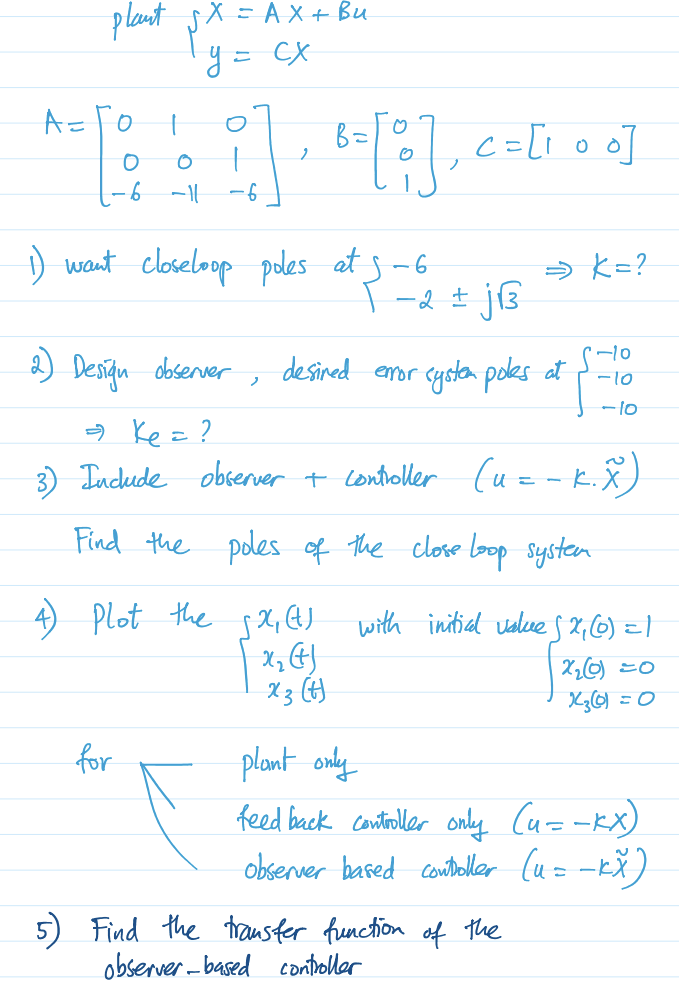 plant { Ẋ = A X + Bu
y = CX
A = [0 1 0; 0 0 1; -6 -11 -6], B = [0; 0; 1], C = [1 0 0]
1) want closeloop poles at { -6 ⇒ K = ?
-2 ± j√3
2) Design observer, desired error system poles at { -10
-10
-10
⇒ Ke = ?
3) Include observer + controller (u = - K. X̃)
Find the poles of the close loop system
4) Plot the { x₁(t) with initial value { x₁(0) = 1
x₂(t) x₂(0) = 0
x₃(t) x₃(0) = 0
for plant only
feedback controller only (u = -KX)
observer based controller (u = -KX̃)
5) Find the transfer function of the
observer-based controller